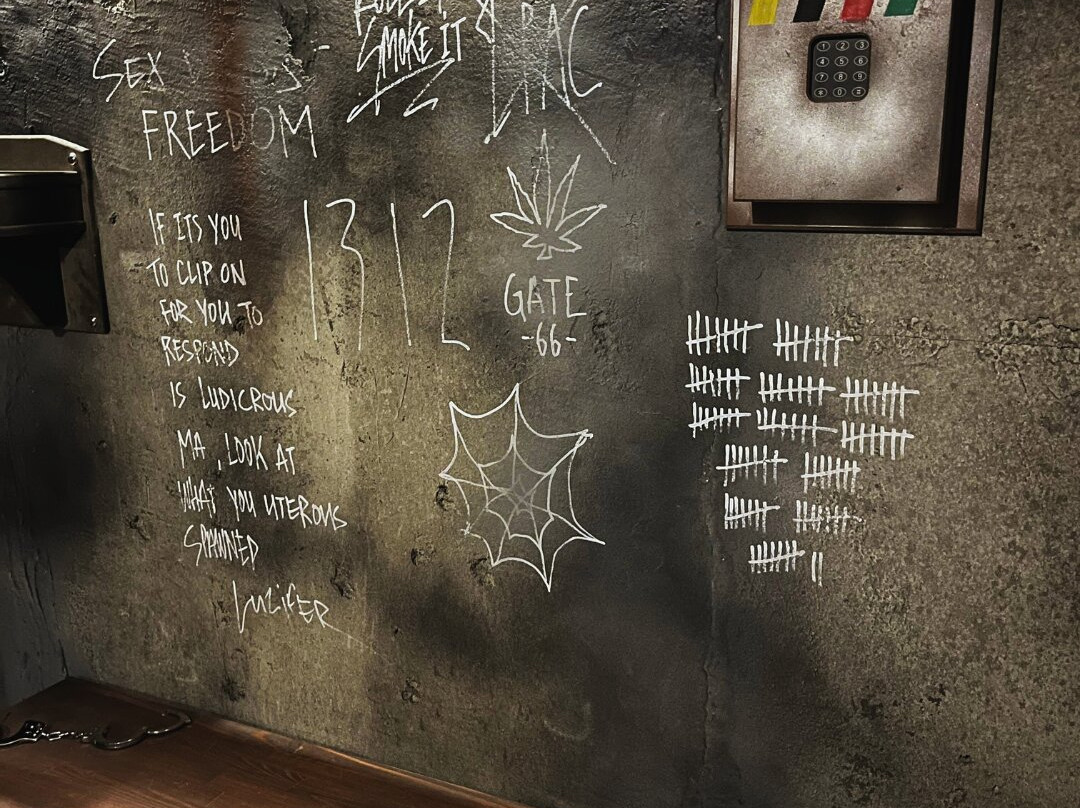 SMOKE IT
SEX
FREEDOM
IF ITS YOU
TO CLIP ON
FOR YOU TO
RESPOND
IS LUDICROUS
MA, LOOK AT
WHAT YOU UTEROUS
SPAWNED
LUCIFER
1312
GATE
-66-
1 2 3
4 5 6
7 8 9
* 0 #